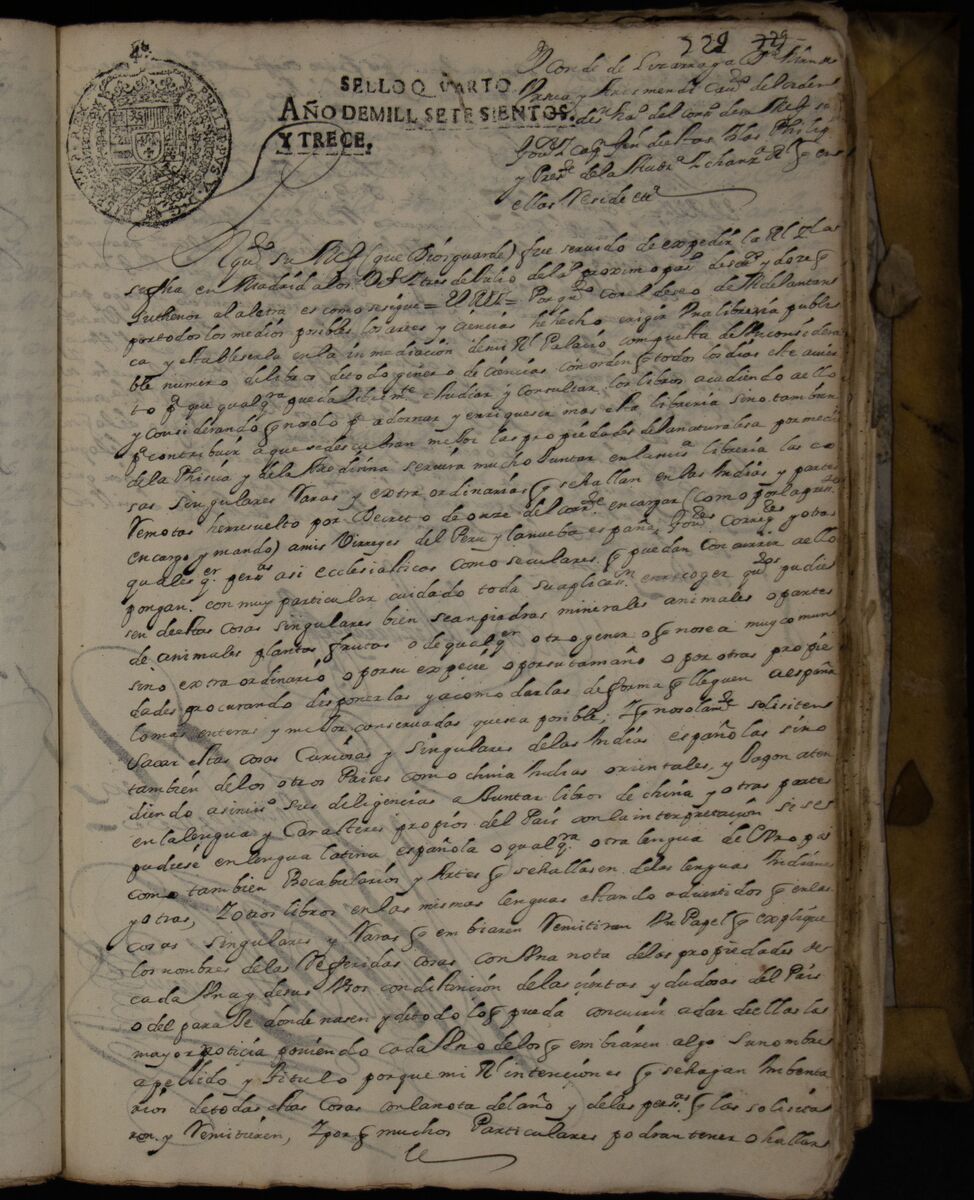 229 229
SELLO QVARTO
AÑO DE MILL SETESIENTOS,
Y TRECE.
PHILIPPVS V D G
HISPANIAR REX
El Conde de Lizarraga
Ursua y Arismendi Cavº del orden
de del consº de su Magd su
Govr y Capn Gen de estas Yslas Philipis
y Presde de la Audª y Chanzª Rl q en
ellas Reside etª
Por qto su Magd (que Dios guarde) fue servido de expedir la Rl
su fha en Madrid a los de Julio del proximo pasº de setesº y doze q
su thenor a la letra es como se sigue = El Rey = Por qto con el deseo de Adelantar
por todos los medios posibles las artes y ciencias he hecho erigir Una libreria publi
ca y estableserla en la inmediacion de mi Rl Palacio compuesta de Un considera
ble numero de libros de todo género de ciencias con orden q todos los dias este avier
to pª que qualqra pueda libremte estudiar y consultar los libros acudiendo a ello
y considerando q no solo pª adornar y enriqueser mas esta libreria sino tambien
pª contribuir a que se descubran mejor las propiedades de la naturalesa por medio
de la Phisica y de la Medicina serviria mucho Juntar en la misª libreria las co
sas singulares Raras y extraordinarias q se hallan en las Indias y partes
Remotas he rresuelto por Decreto de onze del corrte encargar (como por la preste
encargo y mando) a mis Virreyes del Peru y la nueba españa, Govres Corregres y otras
quales qr persas asi ecclesiasticas como seculares q puedan concurrir a ello
pongan con muy particular cuidado toda su aplicasn en rrecoger qtos pudie
sen de estas cosas singulares bien sean piedras minerales animales o partes
de animales plantas frutas o de qualqr otro genero q no sea muy comun
sino extraordinario o por su expecie o por su tamaño o por otras propie
dades procurando disponerlas y acomodarlas de forma q lleguen a españa
lo mas enteras y mejor conservadas que sea posible, Y q no solamte solisiten
sacar estas cosas Curiosas y singulares de las Indias españolas sino
tambien de los otros Paises como china Indias orientales, y Japon aten
diendo asimisº sus diligencias a Juntar libros de china y otras partes
en la lengua y Caracteres propios del Pais con la interpretacion si se
pudiese en lengua latina española o qualqra otra lengua de Uropa
como tambien Bocabularios y Artes q se hallasen de las lenguas Indianas
y otras, Y otros libros en las mismas lenguas estando advertidos q en las
cosas singulares y Raras q embiaren Remitiran Un Papel q explique
los nombres de las Referidas cosas con Una nota de las propiedades de
cada Una y de sus Usos con distincion de las ciertas y dudosas del Pais
o del paraje donde nasen y de todo lo q pueda concurrir a dar de ellas la
mayor noticia poniendo cada Uno de los q embiaren algo su nombre
apellido y titulo porque mi Rl intencion es q se hagan Imbenta
rios de todas estas cosas con la nota del año y de las persas q las solicita
ron y Remitieren, Y por q muchos Particulares podran tener o hallar